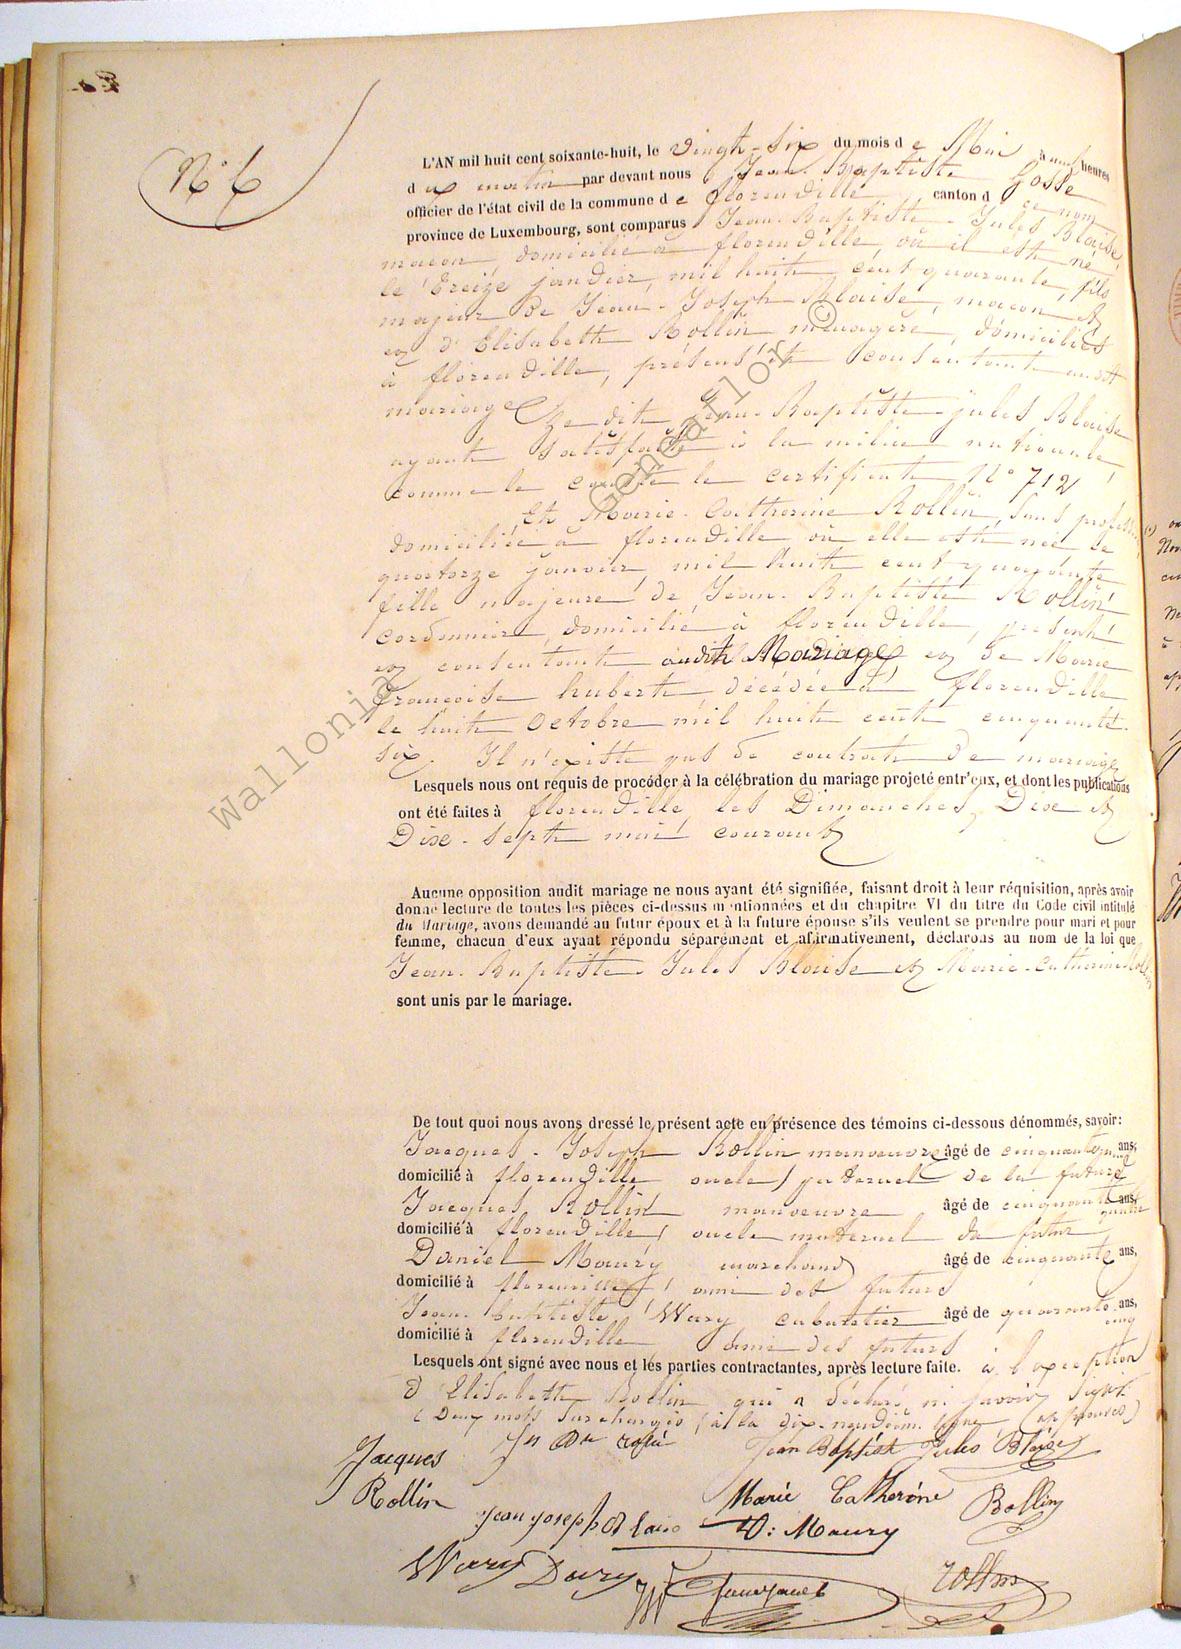 N° 6
L'AN mil huit cent soixante-huit, le vingt-six du mois de Mai à heures
du matin par devant nous Jean Baptiste Gosse
officier de l'état civil de la commune de florenville canton de ce nom
province de Luxembourg, sont comparus Jean-Baptiste-Jules Blaise,
maçon, domicilié à florenville, où il est né
le treize janvier, mil huit cent quarante, fils
majeur de Jean-Joseph Blaise, maçon et
et d'Elisabeth Rollin ménagère, domiciliés
à florenville, présents et consentants audit
mariage le dit Jean-Baptiste-jules Blaise
ayant satisfait à la milice nationale,
comme le constate le certificat N° 712
Et Marie-Catherine Rollin, sans profession
domiciliée à florenville où elle est née le
quatorze janvier, mil huit cent quarante
fille majeure de Jean-Baptiste Rollin
cordonnier, domicilié à florenville, présent
et consentant audit Mariage et de Marie
françoise hubert décédée à florenville
le huit octobre mil huit cent cinquante-
six. Il n'existe pas de contrat de mariage
Lesquels nous ont requis de procéder à la célébration du mariage projeté entr'eux, et dont les publications
ont été faites à florenville, les Dimanches, Dix et
Dix-sept mai courant
Aucune opposition audit mariage ne nous ayant été signifiée, faisant droit à leur réquisition, après avoir
donné lecture de toutes les pièces ci-dessus mentionnées et du chapitre VI du titre du Code civil intitulé
du Mariage, avons demandé au futur époux et à la future épouse s'ils veulent se prendre pour mari et pour
femme, chacun d'eux ayant répondu séparément et affirmativement, déclarons au nom de la loi que
Jean-Baptiste-Jules Blaise et Marie-Catherine Rollin
sont unis par le mariage.
De tout quoi nous avons dressé le présent acte en présence des témoins ci-dessous dénommés, savoir:
Jacques-Joseph Rollin manoeuvre âgé de ans,
domicilié à florenville oncle paternel de la future
Jacques Rollin manoeuvre âgé de cinquante quatre ans,
domicilié à florenville, oncle maternel du futur
Daniel Maury marchand âgé de cinquante ans,
domicilié à florenville, ami des futurs
Jean-baptiste Wary cabaretier âgé de quarante-cinq ans,
domicilié à florenville ami des futurs
Lesquels ont signé avec nous et les parties contractantes, après lecture faite. à l'exception
d'Elisabeth Rollin qui a déclaré ne savoir signer
(Deux mots surchargés à la dix-neuvième ligne (approuvés)
Jacques
Rollin
Jean Baptiste Jules Blaise
Marie Catherine Rollin
Jean joseph Blaise
D: Maury
Wary
Rollin
Wallonia Genealor ©